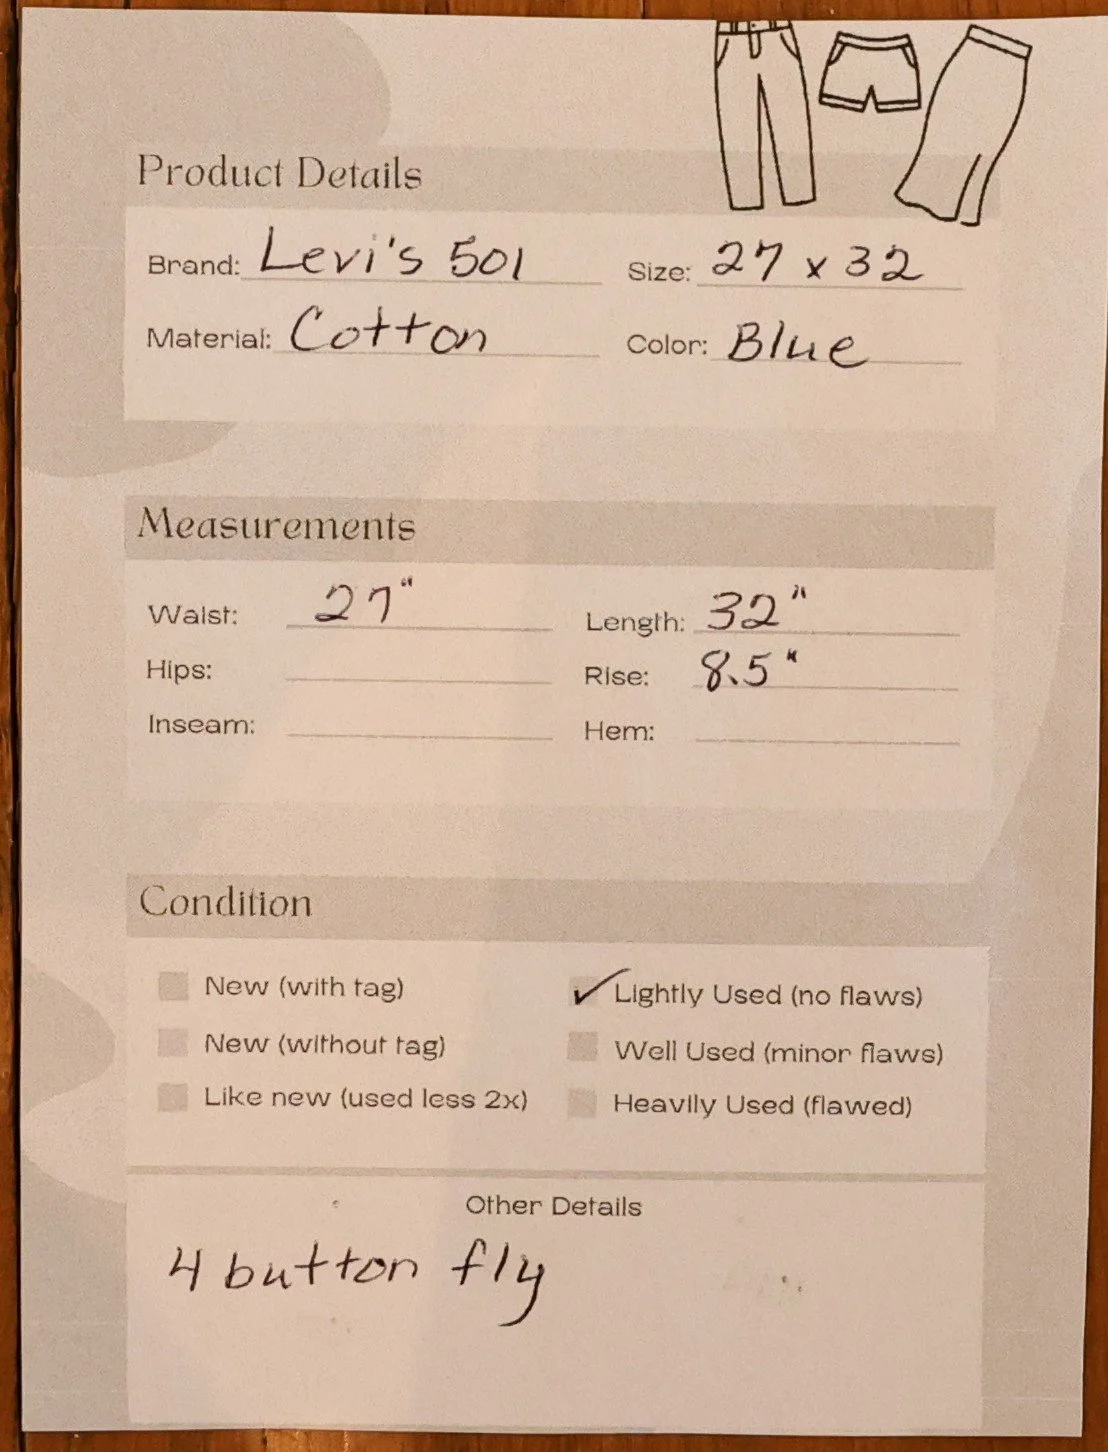 Product Details
Brand: Levi's 501 Size: 27 x 32
Material: Cotton Color: Blue
Measurements
Waist: 27" Length: 32"
Hips: Rise: 8.5"
Inseam: Hem:
Condition
New (with tag) ✓ Lightly Used (no flaws)
New (without tag) Well Used (minor flaws)
Like new (used less 2x) Heavily Used (flawed)
Other Details
4 button fly